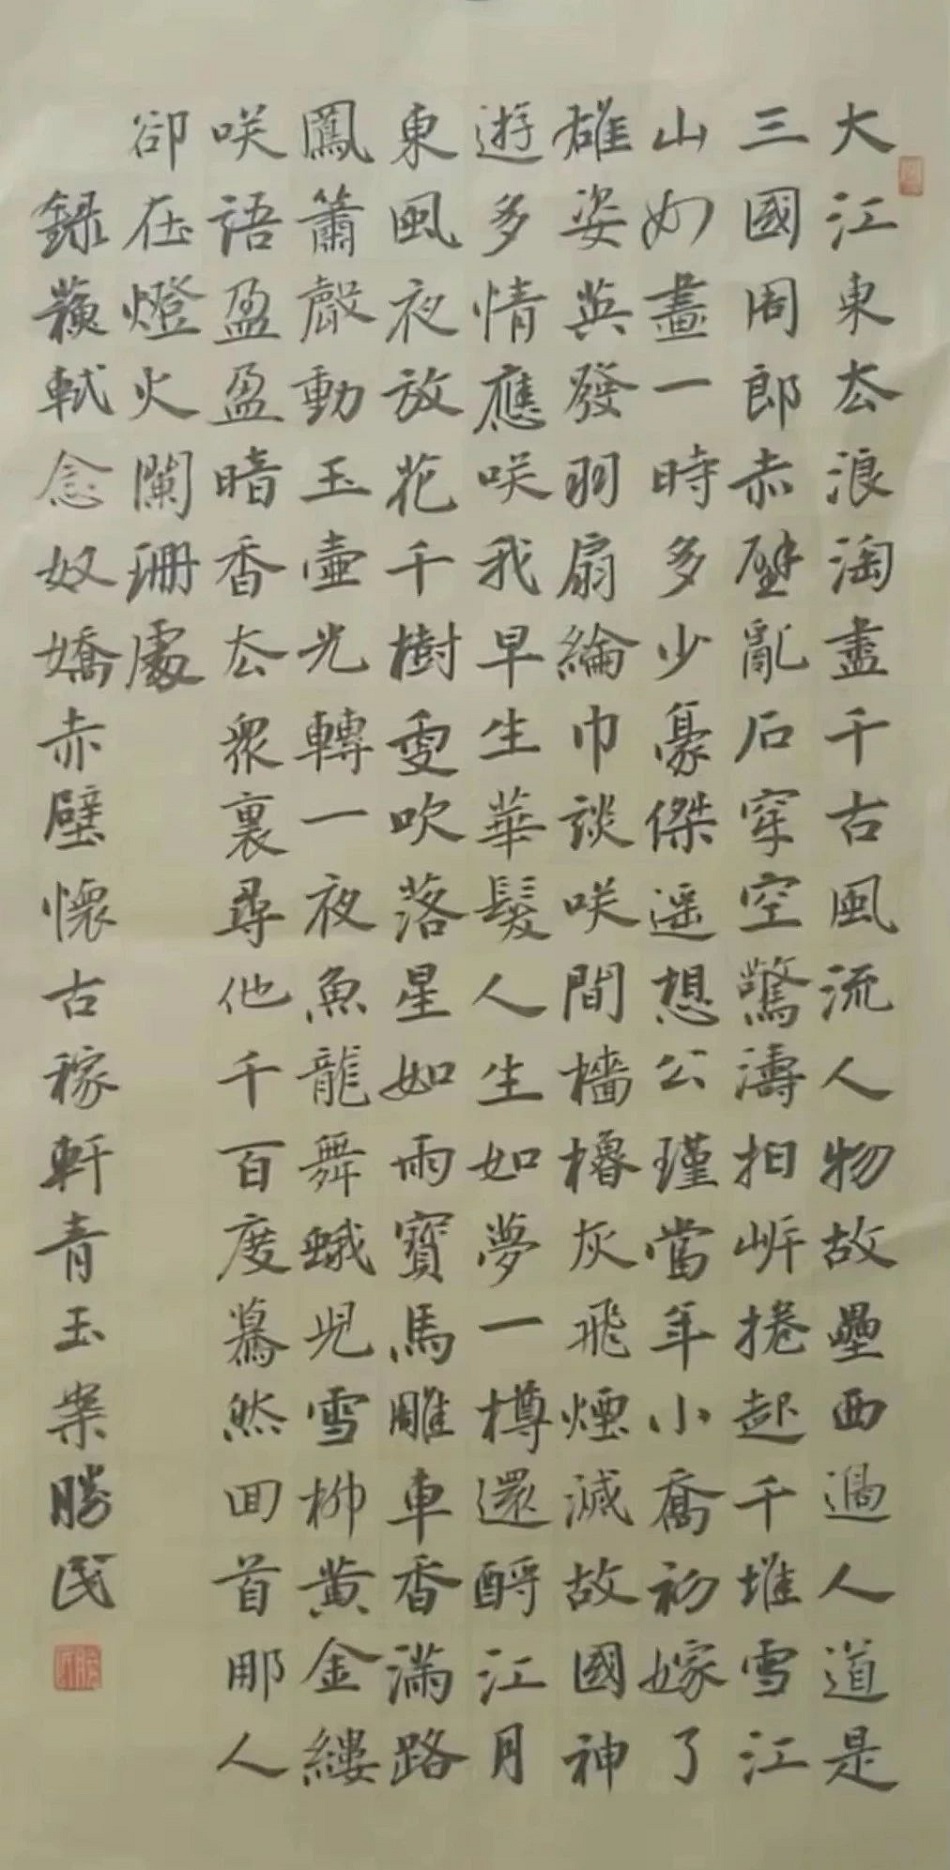 大江東去浪淘盡千古風流人物故壘西過人道是
三國周郎赤壁亂石穿空驚濤拍岸捲起千堆雪江
山如畫一時多少豪傑遥想公瑾當年小喬初嫁了
雄姿英發羽扇綸巾談咲間檣櫓灰飛煙滅故國神
遊多情應咲我早生華髮人生如夢一樽還酹江月
東風夜放花千樹更吹落星如雨寶馬雕車香滿路
鳳簫聲動玉壺光轉一夜魚龍舞蛾兒雪柳黄金縷
咲語盈盈暗香去衆裏尋他千百度驀然回首那人
卻在燈火闌珊處
録蘇軾念奴嬌赤壁懷古稼軒青玉案勝民